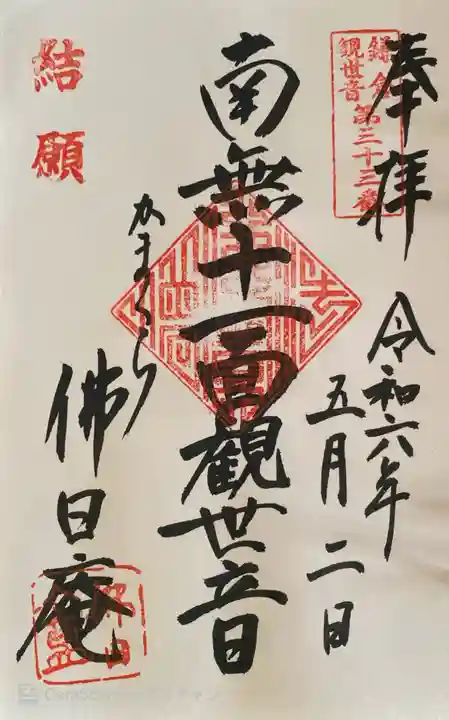 奉拝
鎌倉
観世音第三十三番
令和六年
五月二日
南無十一面観世音
かまくら
佛日庵
結願
CamScanner